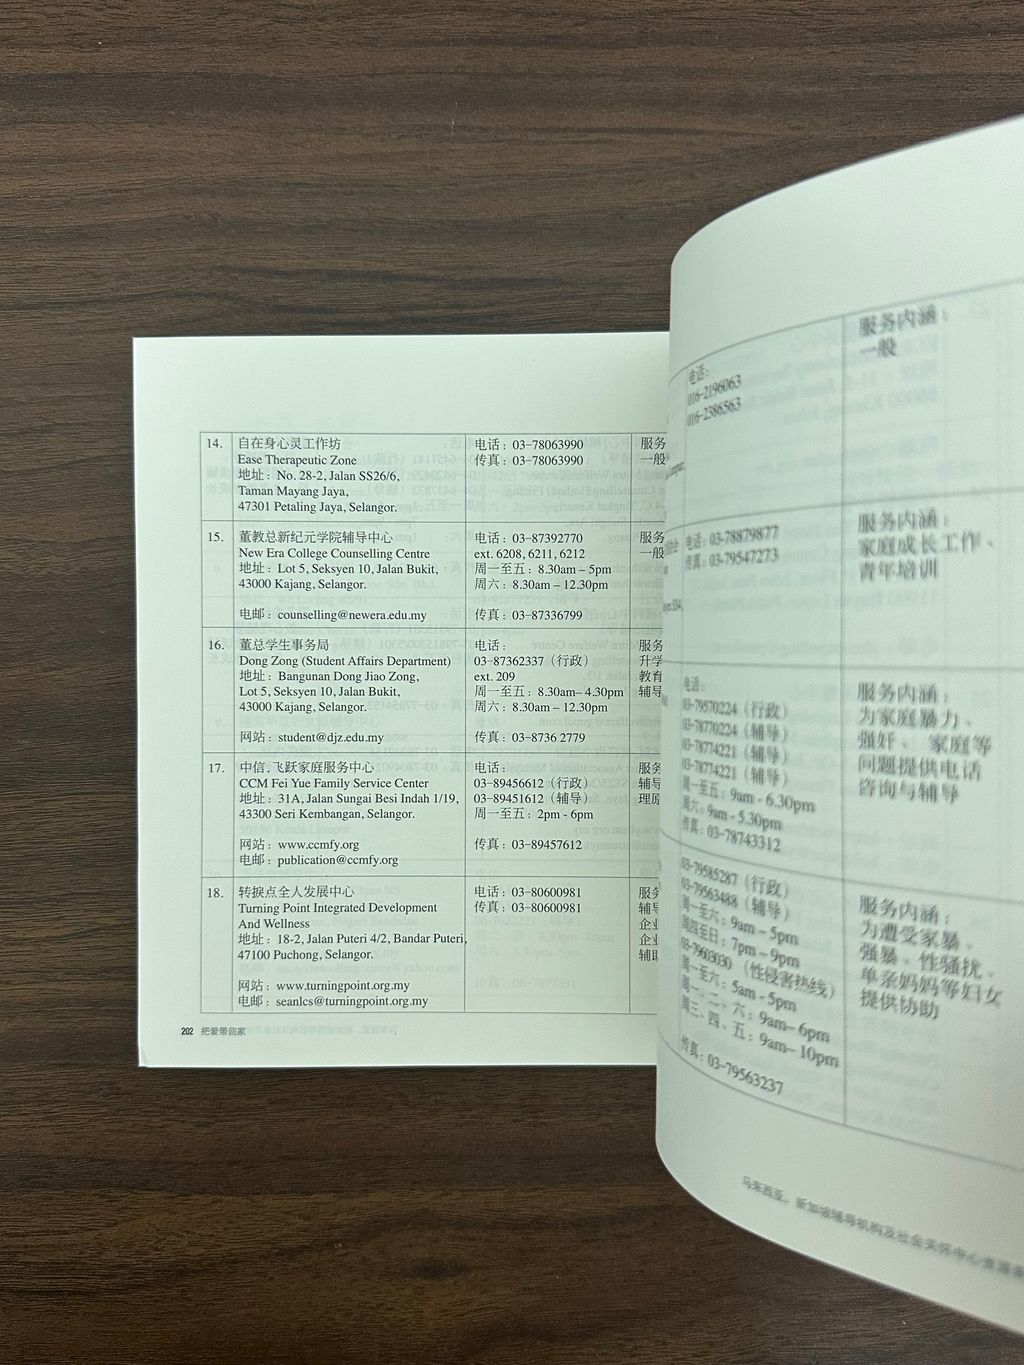 14.
自在身心灵工作坊
Ease Therapeutic Zone
地址：No. 28-2, Jalan SS26/6,
Taman Mayang Jaya,
47301 Petaling Jaya, Selangor.
电话：03-78063990
传真：03-78063990
服务
一般
15.
董教总新纪元学院辅导中心
New Era College Counselling Centre
地址：Lot 5, Seksyen 10, Jalan Bukit,
43000 Kajang, Selangor.
电邮：counselling@newera.edu.my
电话：03-87392770
ext. 6208, 6211, 6212
周一至五：8.30am – 5pm
周六：8.30am – 12.30pm
传真：03-87336799
服务
一般
16.
董总学生事务局
Dong Zong (Student Affairs Department)
地址：Bangunan Dong Jiao Zong,
Lot 5, Seksyen 10, Jalan Bukit,
43000 Kajang, Selangor.
网站：student@djz.edu.my
电话：
03-87362337（行政）
ext. 209
周一至五：8.30am– 4.30pm
周六：8.30am – 12.30pm
传真：03-8736 2779
服务
升学
教育
辅导
17.
中信．飞跃家庭服务中心
CCM Fei Yue Family Service Center
地址：31A, Jalan Sungai Besi Indah 1/19,
43300 Seri Kembangan, Selangor.
网站：www.ccmfy.org
电邮：publication@ccmfy.org
电话：
03-89456612（行政）
03-89451612（辅导）
周一至五：2pm - 6pm
传真：03-89457612
服务
辅导
理
18.
转捩点全人发展中心
Turning Point Integrated Development
And Wellness
地址：18-2, Jalan Puteri 4/2, Bandar Puteri,
47100 Puchong, Selangor.
网站：www.turningpoint.org.my
电邮：seanlcs@turningpoint.org.my
电话：03-80600981
传真：03-80600981
服务
辅导
企业
企业
辅助
202 把爱带回家
电话：
016-2196063
016-2386563
服务内涵：
一般
电话：03-78879877
传真：03-79547273
服务内涵：
家庭成长工作、
青年培训
电话：
03-79570224（行政）
03-78770224（辅导）
03-78774221（辅导）
03-78774221（辅导）
周一至五：9am - 6.30pm
周六：9am - 5.30pm
传真：03-78743312
服务内涵：
为家庭暴力、
强奸、家庭等
问题提供电话
咨询与辅导
03-79585287（行政）
03-79563488（辅导）
周一至六：9am – 5pm
周四至日：7pm – 9pm
03-79603030（性侵害热线）
周一至六：5am - 5pm
周一、二、六：9am– 6pm
周三、四、五：9am– 10pm
传真：03-79563237
服务内涵：
为遭受家暴、
强暴、性骚扰、
单亲妈妈等妇女
提供协助
马来西亚、新加坡辅导机构及社会关怀中心资源